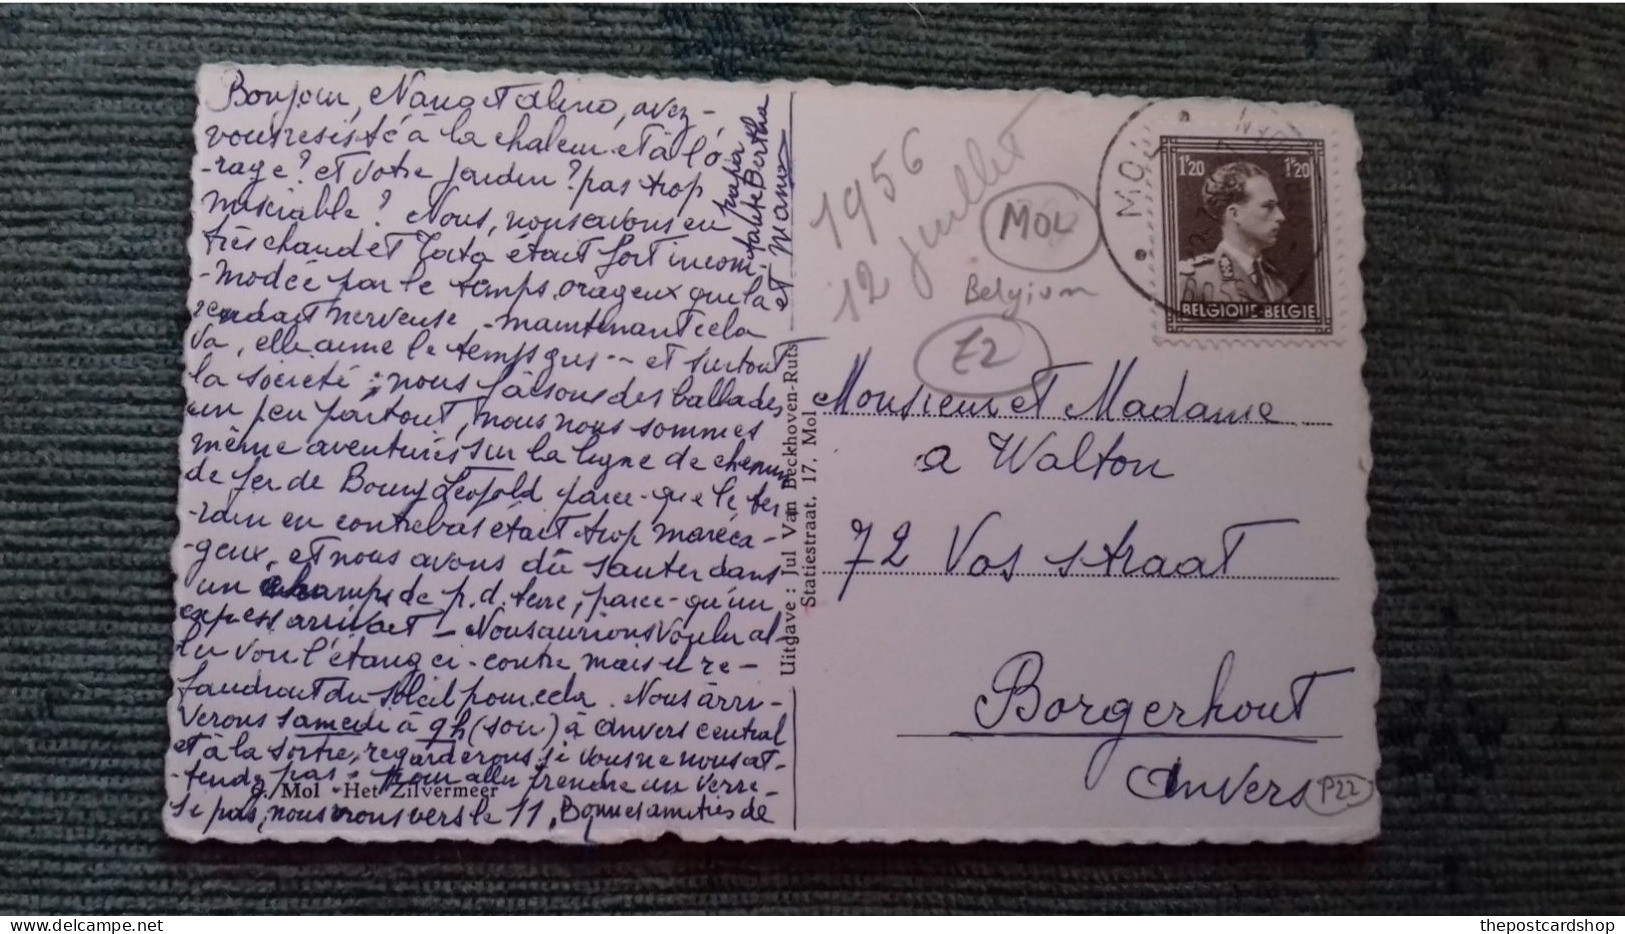 Bonjour, Nana et Alino, avez-
vous resisté à la chaleur et à l'o
-rage? et votre jardin? pas trop
misérable? Nous, nous avons eu
très chaud et Tata était fort incom-
-modée par le temps orageux qui la
rendait nerveuse - maintenant cela
va, elle aime le temps gris -- et surtout
la société; nous faisons des ballades
un peu partout, nous nous sommes
même aventurés sur la ligne de chemin
de fer de Bourg Léopold parce-que le ter
-rain en contrebas était trop maréca-
-geux, et nous avons dû sauter dans
un champs de p.d. terre, parce-qu'un
express arrivait - Nous aurions voulu al-
ler voir l'étang ci-contre mais il re-
faudrait du soleil pour cela. Nous arri-
verons samedi à 9h (soir) à Anvers central
et à la sortie, regarderons si vous ne nous at-
-tendez pas. pour aller prendre un verre -
si pas, nous irons vers le 11, Bonnes amitiés de
papa
tante Berthe
et Maman
8. Mol - Het Zilvermeer
Uitgave: Jul Van Beckhoven-Ruts
Statiestraat, 17, Mol
1956
12 juillet
MOL
Belgium
£2
MOL
1F20 1F20
BELGIQUE-BELGIE
Monsieur et Madame
a Walton
72 Vos straat
Borgerhout
Anvers
P22
thepostcardshop